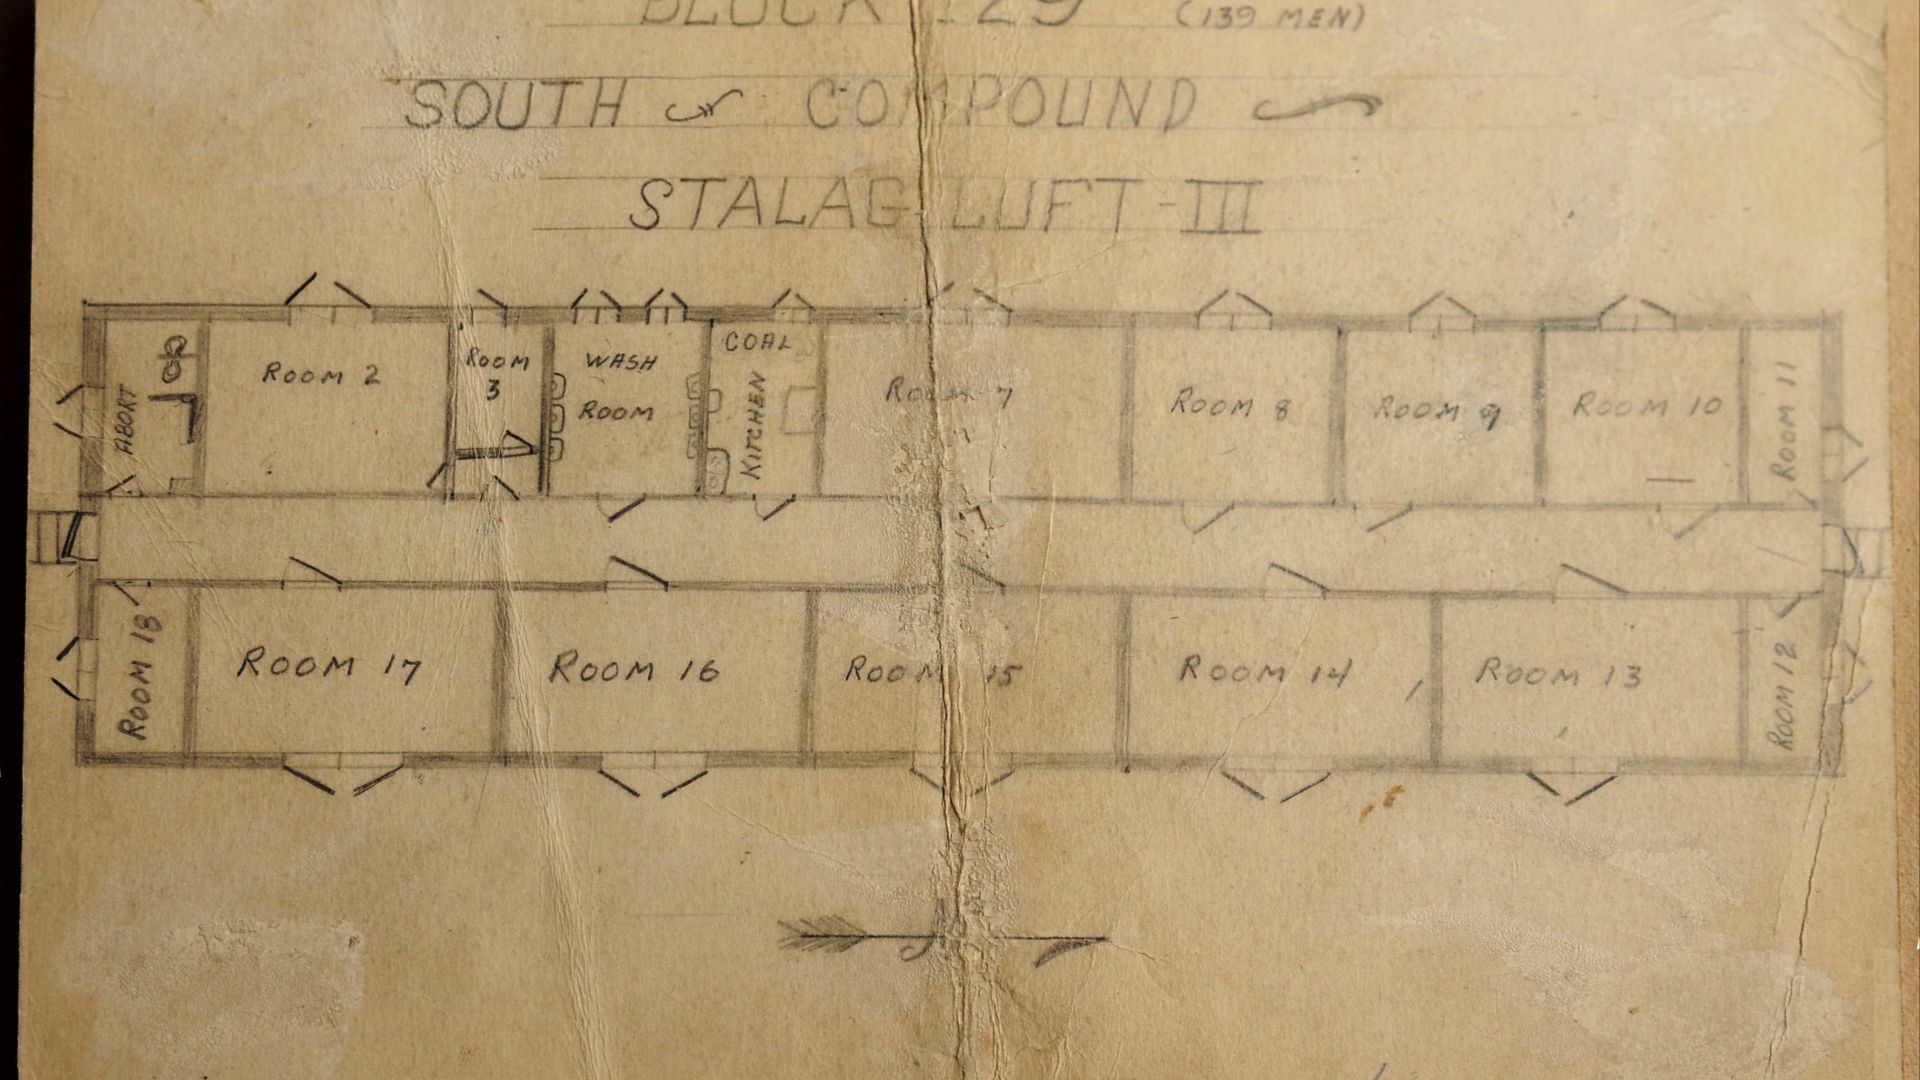 BLOCK 129 (139 MEN)
SOUTH COMPOUND
STALAG LUFT-III
ABORT
ROOM 2
ROOM
3
WASH
ROOM
COAL
KITCHEN
ROOM 7
ROOM 8
ROOM 9
ROOM 10
ROOM 11
ROOM 18
ROOM 17
ROOM 16
ROOM 15
ROOM 14
ROOM 13
ROOM 12